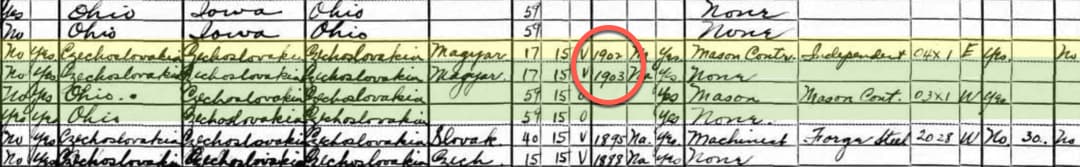 Yes Ohio Iowa Ohio 59 None
No Ohio Iowa Ohio 59 None
No Yes Czechoslovakia Czechoslovakia Czechoslovakia Magyar 17 15 V 1902 Na Yes Mason Contr. Independent 04X1 E Yes. No
No Yes Czechoslovakia Czechoslovakia Czechoslovakia Magyar. 17 15 V 1903 Na Yes None
No Yes Ohio. Czechoslovakia Czechoslovakia 59 15 0 Yes Mason Mason Cont. 03X1 W Yes.
Yes Yes Ohio Czechoslovakia Czechoslovakia 59 15 0 Yes None.
No Yes Czechoslovakia Czechoslovakia Czechoslovakia Slovak 40 15 V 1895 Na. Yes. Machinist Forge Steel 2028 W No. 30. No
No Yes Czechoslovakia Czechoslovakia Czechoslovakia Czech. 15 15 V 1898 Na Yes None